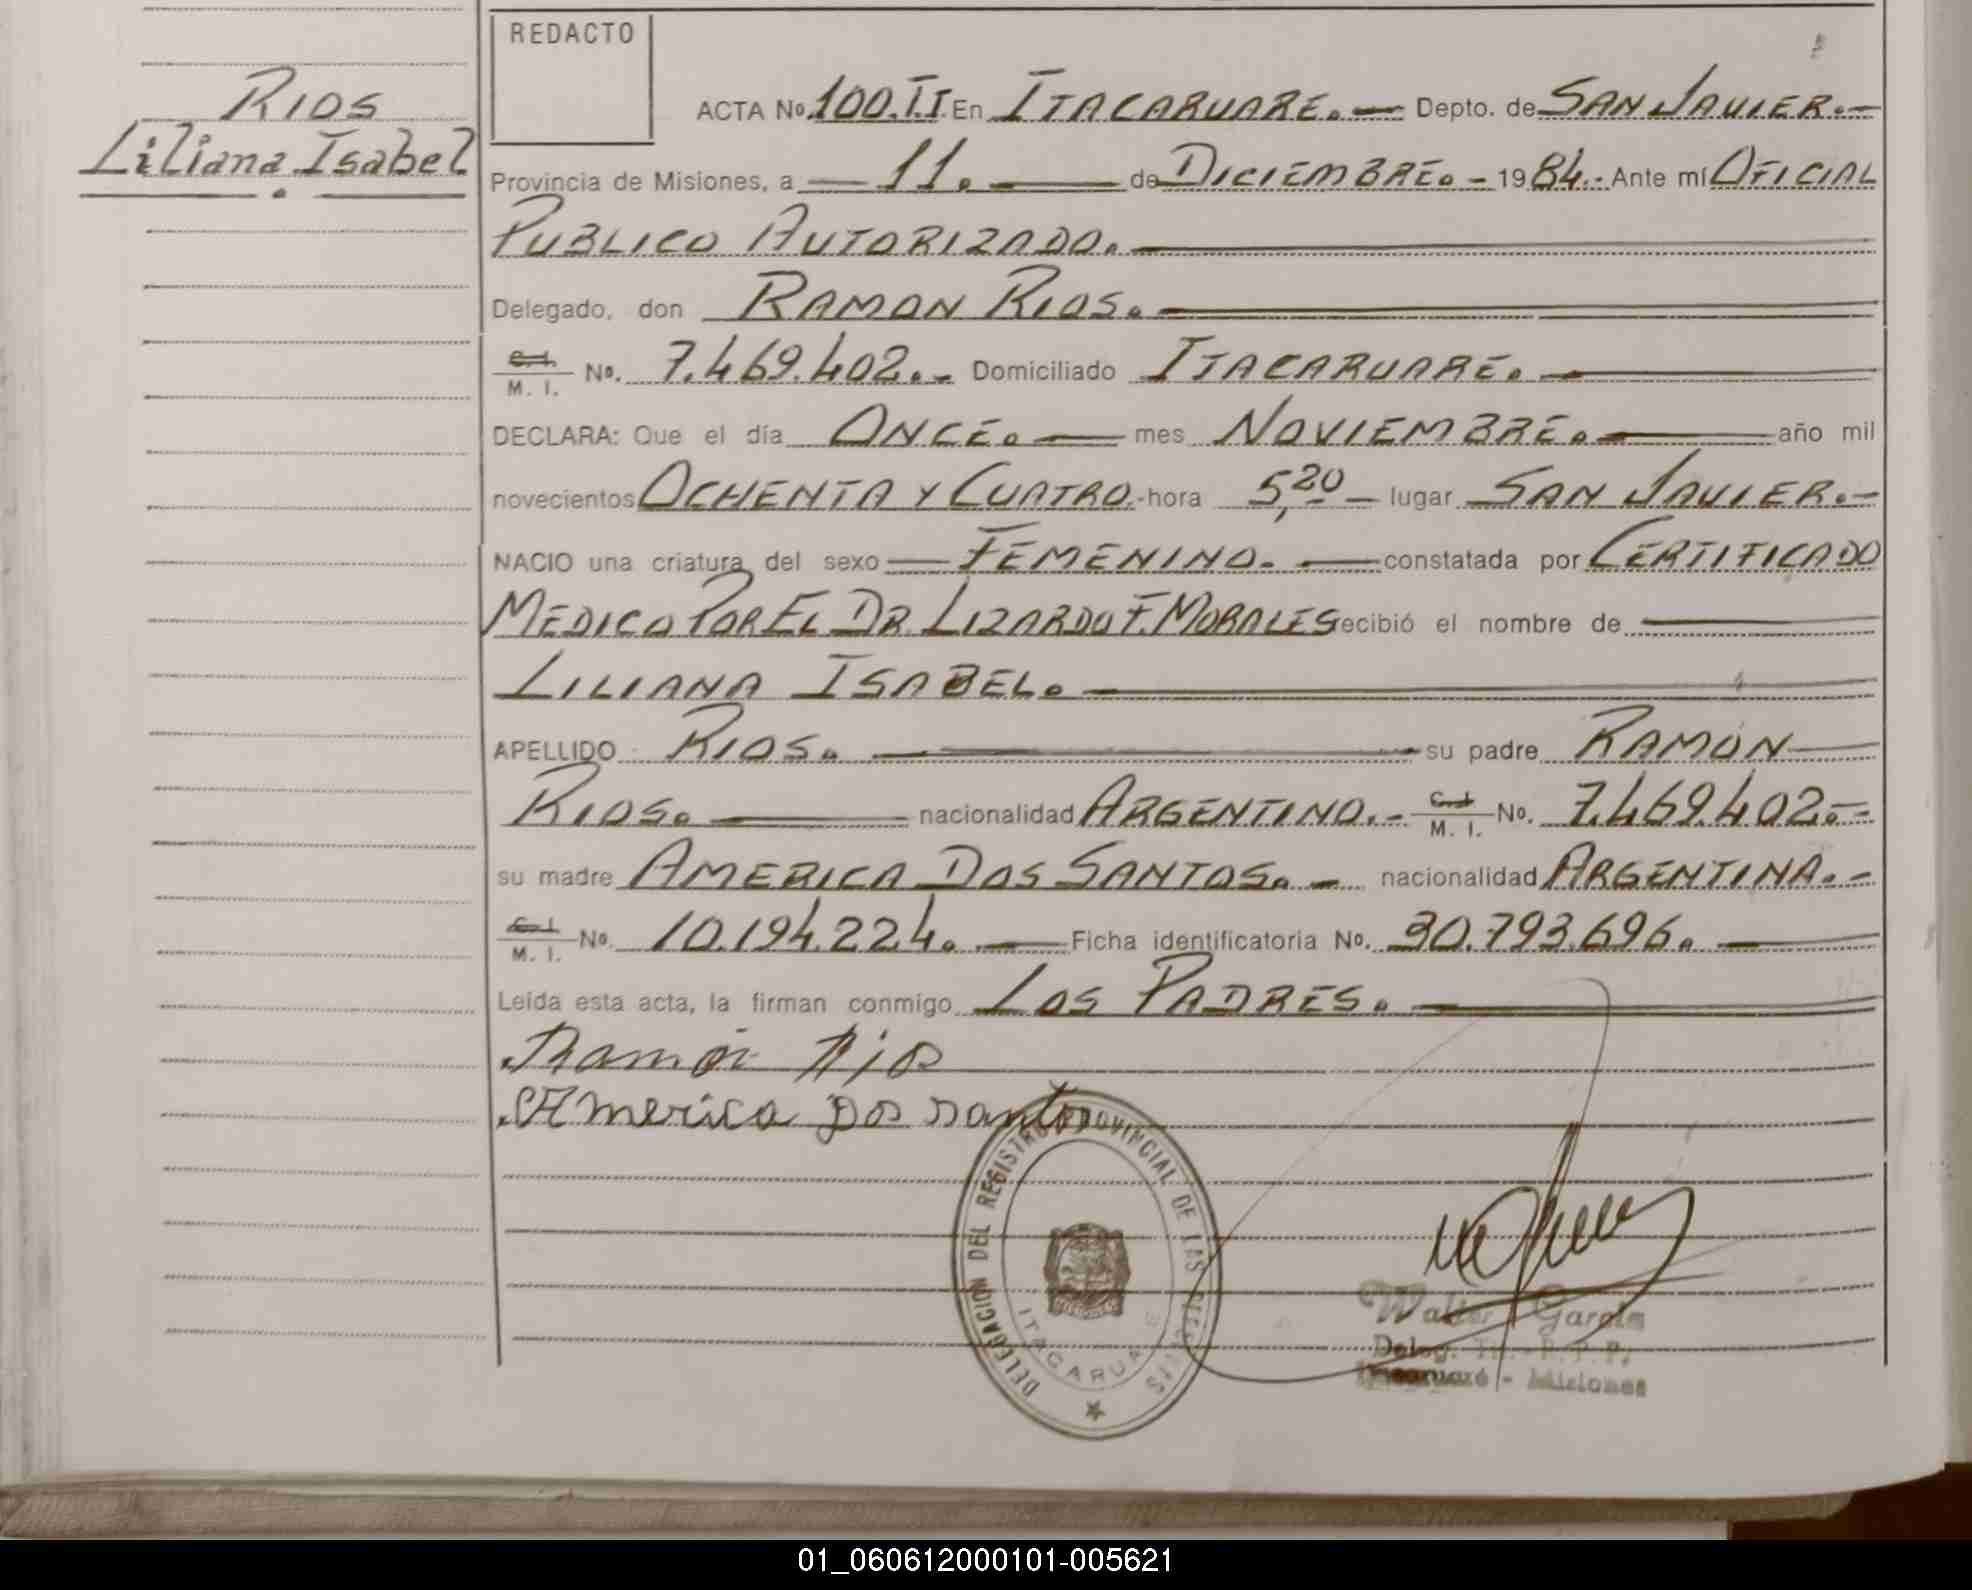 RIOS
Liliana Isabel
REDACTO
ACTA No. 100.T.I. En ITACARUARE.— Depto. de SAN JAVIER.—
Provincia de Misiones, a — 11. — de DICIEMBRE. - 1984.- Ante mí OFICIAL
PUBLICO AUTORIZADO. —
Delegado, don RAMON RIOS. —
C.I. / M. I. No. 7.469.402.- Domiciliado ITACARUARE. —
DECLARA: Que el día ONCE. — mes NOVIEMBRE. — año mil
novecientos OCHENTA Y CUATRO.- hora 5,20 — lugar SAN JAVIER.-
NACIO una criatura del sexo — FEMENINO. — constatada por CERTIFICADO
MEDICO POR EL DR. LIZARDO F. MORALES recibió el nombre de —
LILIANA ISABEL. —
APELLIDO RIOS. — su padre RAMON —
RIOS. — nacionalidad ARGENTINO.- C.I. / M. I. No. 7.469.402.-
su madre AMERICA DOS SANTOS. - nacionalidad ARGENTINA. -
C.I. / M. I. No. 10.194.224. — Ficha identificatoria No. 30.793.696. —
Leída esta acta, la firman conmigo LOS PADRES. —
Ramón Rios
America Dos Santos
DELEGACION DEL REGISTRO PROVINCIAL DE LAS PERSONAS
ITACARUARE
Walter Garcim
Deleg. Tit. - R.P.P.
Itacaruaré - Misiones
01_060612000101-005621